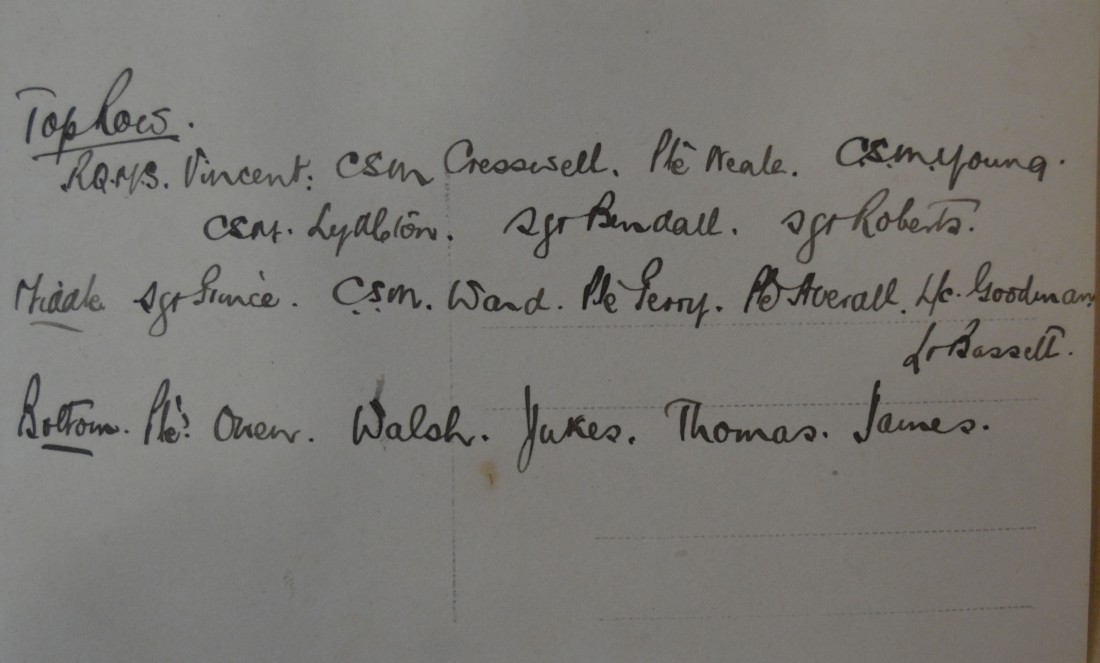 Top Row.
R.Q.M.S. Vincent. CSM Cresswell. Pte Neale. C.S.M. Young.
CSM. Sgt Bendall. Sgt Roberts.
Middle Sgt C.S.M. Ward. Pte Perry. Pte Averall. L/c. Goodman
Bassett.
Bottom. Pte's Owen. Walsh. Jukes. Thomas. James.